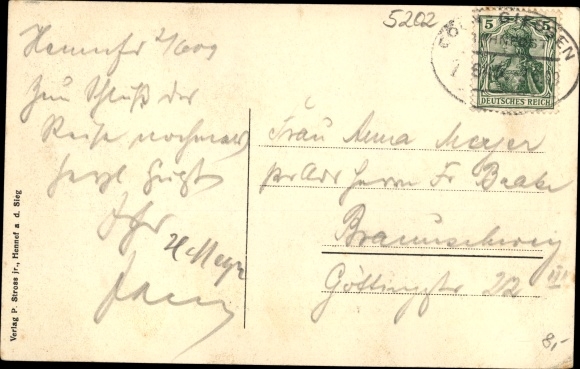 5202
5
DEUTSCHES REICH
GIESSEN
Hennef
Zum Schluß der
Reise nochmals
herzl.
Ihr
H Meyer
Frau Anna Meyer
pr Adr Herrn Fr
Braunschweig
Göttingstr 22 III
8,-
Verlag P. Stross jr., Hennef a d. Sieg